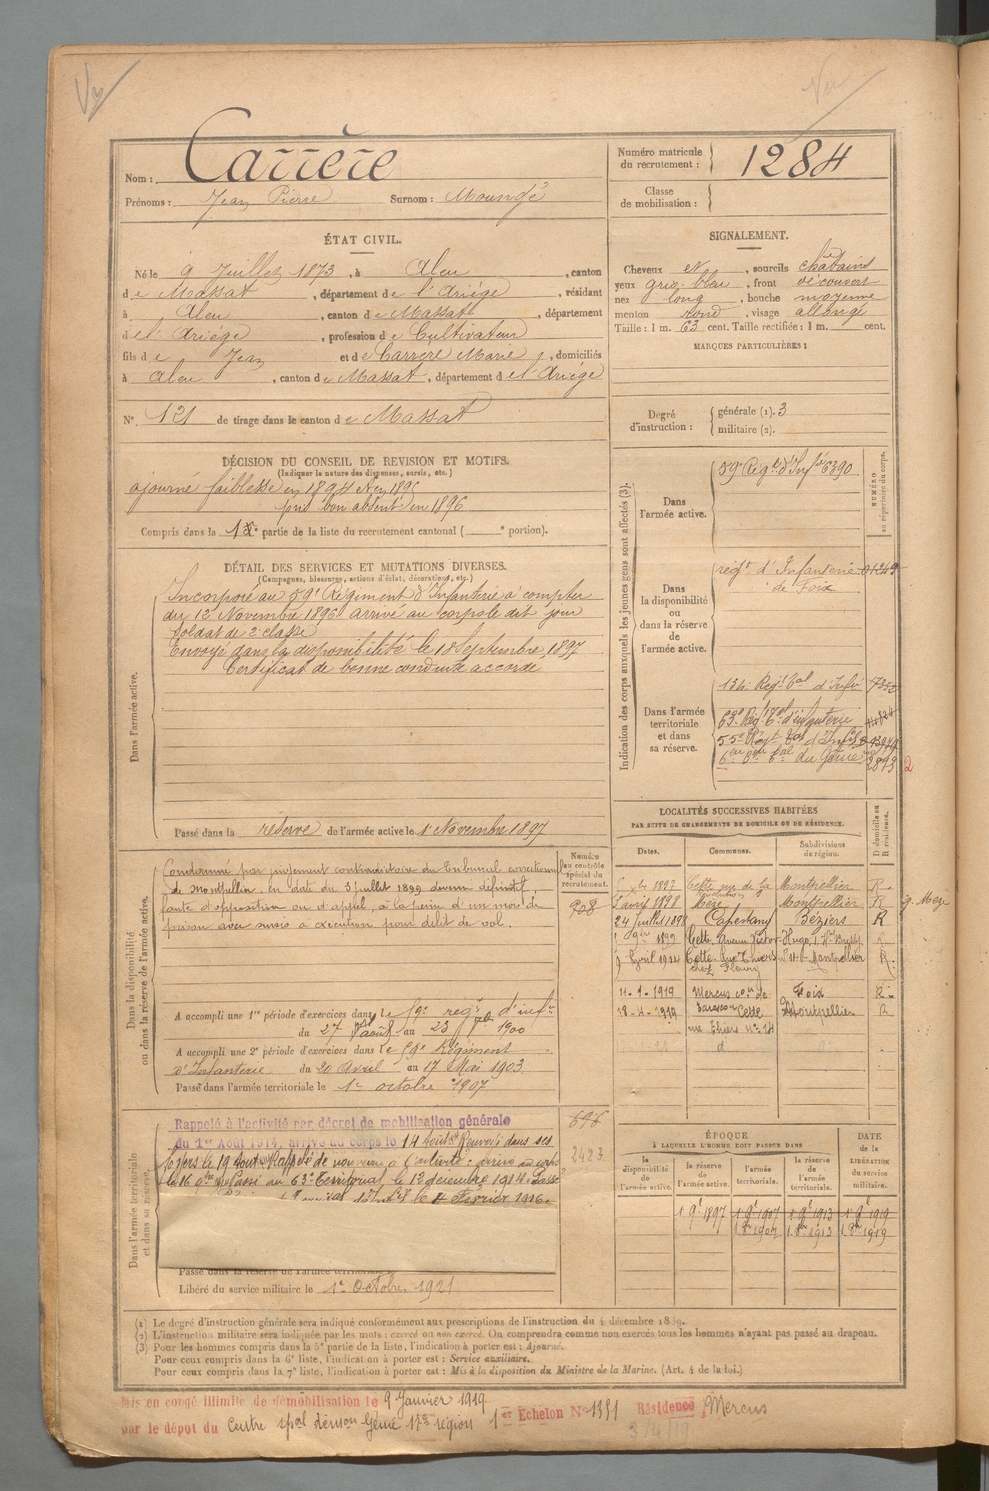 Vu
Vu
Nom : Carrère
Prénoms : Jean Pierre Surnom : Moundé
Numéro matricule du recrutement : 1284
Classe de mobilisation :
ÉTAT CIVIL.
Né le 9 Juillet 1873, à Aleu, canton
de Massat, département de l'Ariège, résidant
à Aleu, canton de Massat, département
de l'Ariège, profession de Cultivateur
fils de Jean et de Carrère Marie, domiciliés
à Aleu, canton de Massat, département de l'Ariège
N° 121 de tirage dans le canton de Massat
SIGNALEMENT.
Cheveux et, sourcils châtains
yeux gris-bleu, front découvert
nez long, bouche moyenne
menton rond, visage allongé
Taille : 1 m. 63 cent. Taille rectifiée : 1 m. cent.
MARQUES PARTICULIÈRES :
Degré d'instruction : générale (1). 3
militaire (2).
DÉCISION DU CONSEIL DE REVISION ET MOTIFS.
(Indiquer la nature des dispenses, sursis, etc.)
ajourné faiblesse en 1894 et en 1895
pris bon absent en 1896
Compris dans la 1e partie de la liste du recrutement cantonal ( e portion).
DÉTAIL DES SERVICES ET MUTATIONS DIVERSES.
(Campagnes, blessures, actions d'éclat, décorations, etc.)
Dans l'armée active.
Incorporé au 59e Régiment d'Infanterie à compter
du 12 Novembre 1896 arrivé au corps le dit jour
Soldat de 2e classe
Envoyé dans la disponibilité le 18 Septembre 1897
Certificat de bonne conduite accordé
Passé dans la réserve de l'armée active le 1 Novembre 1897
Indication des corps auxquels les jeunes gens sont affectés (3).
NUMÉRO au répertoire du corps.
Dans l'armée active.
59e Régt d'Infie 6390
Dans la disponibilité ou dans la réserve de l'armée active.
régt d'Infanterie 01249
de Foix
Dans l'armée territoriale et dans sa réserve.
134e Régt tal d'Infie
63e Rég. d'infanterie
55e Régt tal d'Infie
du Génie 2893 2
LOCALITÉS SUCCESSIVES HABITÉES
PAR SUITE DE CHANGEMENTS DE DOMICILE OU DE RÉSIDENCE.
Dates. Communes. Subdivisions de région. D domicile ou R résidence.
1897 Cette rue de la Révolution Montpellier R
avril 1898 Mèze Montpellier R g. Mèze
24 Juillet 1898 Capestang Béziers R
1899 Cette Avenue Victor-Hugo
9 Avril 1914 Cette Rue Thiers n° 14 Montpellier R
chez Fleury
11-1-1919 Mercus con de Tarascon Foix R
18-4-1919 Cette Montpellier R
rue Thiers n° 14
d
Dans la disponibilité ou dans la réserve de l'armée active.
Numéro au contrôle spécial du recrutement.
908
Condamné par jugement contradictoire du tribunal correctionnel
de Montpellier, en date du 3 juillet 1899 devenu définitif,
faute d'opposition ou d'appel, à la peine d'un mois de
prison avec sursis à exécution pour délit de vol.
A accompli une 1re période d'exercices dans le 59e régt d'infie
du 27 août au 23 1900
A accompli une 2e période d'exercices dans le 59e Régiment
d'Infanterie du 20 Avril au 17 Mai 1903
Passé dans l'armée territoriale le 1er octobre 1907
Dans l'armée territoriale et dans sa réserve.
696
2423
Rappelé à l'activité par décret de mobilisation générale
du 1er Août 1914, arrivé au corps le 14 Août Renvoyé dans ses
foyers le 19 Août Rappelé de nouveau à l'activité : arrivé au corps
le 16 Passé au 63e Territorial, le 12 décembre 1914. Passé
le 4 Février 1916.
Passé dans la réserve de l'armée territoriale
Libéré du service militaire le 1er Octobre 1921
ÉPOQUE
À LAQUELLE L'HOMME DOIT PASSER DANS
la disponibilité de l'armée active. la réserve de l'armée active. l'armée territoriale. la réserve de l'armée territoriale. DATE de la LIBÉRATION du service militaire.
1 9e 1897 1 9e 1907 1 9e 1913 1 9e 1919
1 8bre 1907 1 8bre 1913 1 8bre 1919
(1) Le degré d'instruction générale sera indiqué conformément aux prescriptions de l'instruction du 4 décembre 1889.
(2) L'instruction militaire sera indiquée par les mots : exercé ou non exercé. On comprendra comme non exercés tous les hommes n'ayant pas passé au drapeau.
(3) Pour les hommes compris dans la 5e partie de la liste, l'indication à porter est : Ajourné.
Pour ceux compris dans la 6e liste, l'indication à porter est : Service auxiliaire.
Pour ceux compris dans la 7e liste, l'indication à porter est : Mis à la disposition du Ministre de la Marine. (Art. 4 de la loi.)
Mis en congé illimité de démobilisation le 9 Janvier 1919
1er Echelon N° 1391 Résidence Mercus
par le dépôt du Centre spal démon Génie 17e région
3/4/19